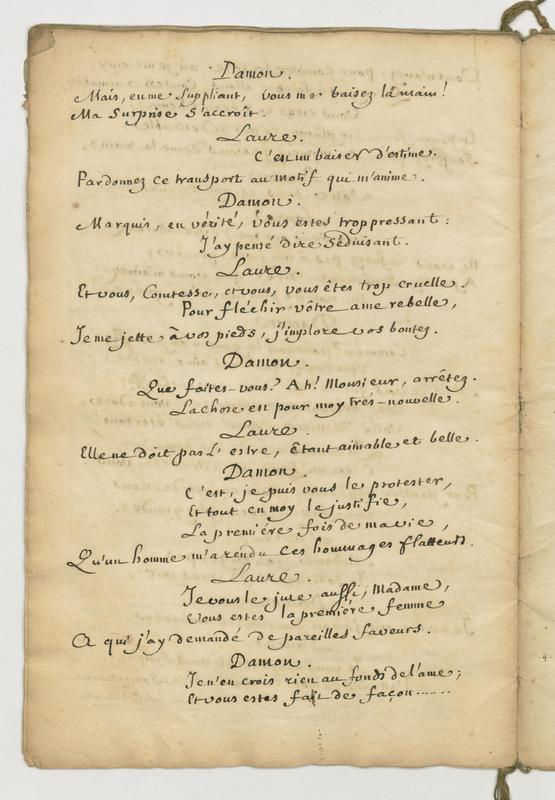 Damon.
Mais, en me suppliant, vous me baisez la main!
Ma surprise s'accroît.
Laure.
C'est un baiser d'estime.
Pardonnez ce transport au motif qui m'anime.
Damon.
Marquis, en vérité, vous estes trop pressant:
J'ay pensé dire Séduisant.
Laure.
Et vous, Comtesse, et vous, vous êtes trop cruelle.
Pour fléchir vôtre ame rebelle,
Je me jette à vos pieds, j'implore vos bontez.
Damon.
Que faites-vous? Ah! Monsieur, arrêtez.
La chose est pour moy trés-nouvelle.
Laure.
Elle ne doit pas l'estre, êtant aimable et belle.
Damon.
C'est, je puis vous le protester,
Et tout en moy le justifie,
La premiére fois de ma vie,
Qu'un homme m'a rendu ces hommages flatteurs.
Laure.
Je vous le jure aussi, Madame,
Vous estes la premiére femme
A qui j'ay demandé de pareilles faveurs.
Damon.
Je n'en crois rien au fonds de l'ame;
Et vous estes fait de façon......